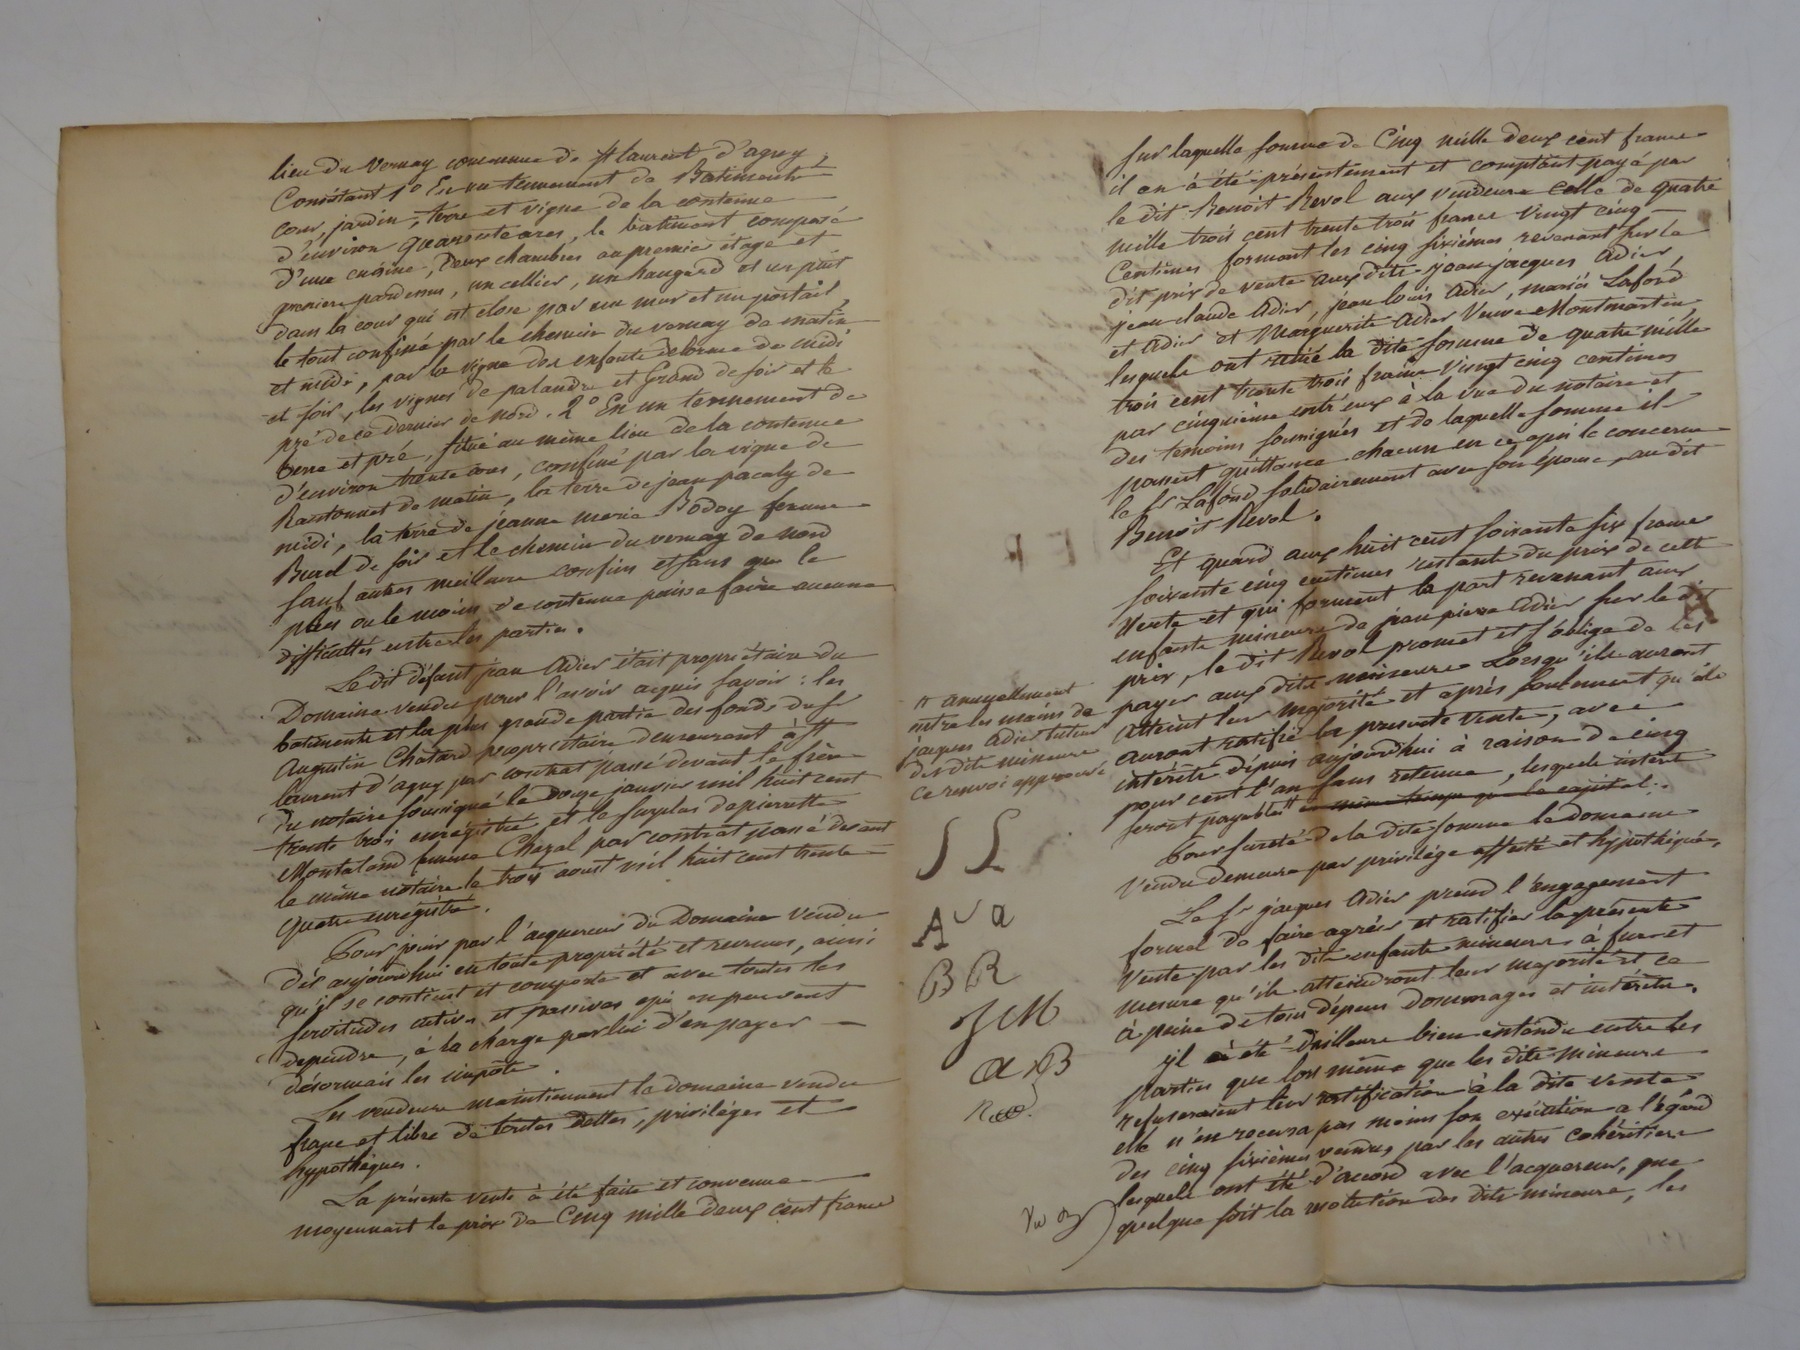 lieu du Vernay commune de St laurent d'agny,
Consistant 1° En un tennement de Batiments
cour, jardin, terre et vigne de la contenue
d'environ quarante ares, le batiment composé
D'une cuisine, Deux chambres au premier étage et
greniers pardessus, un cellier, un hangard et un puit
dans la cour qui est close par un mur et un portail,
le tout confiné par le chemin du vernay de matin
et midi, par la vigne des enfants delorme de midi
et soir, les vignes de palandre et Grand de soir et le
pré de ce dernier de nord. 2° En un tennement de
terre et pré, situé au même lieu de la contenue
d'environ trente ares, confiné par la vigne de
Rantonnet de matin, la terre de jean pacaly de
midi, la terre de jeanne marie Bodoy femme
Burel de soir et le chemin du vernay de nord
sauf autres meilleurs confins et sans que le
plus ou le moins de contenue puisse faire aucune
difficultés entre les parties.
Le dit défunt jean Adier était propriétaire du
Domaine vendu pour l'avoir acquis savoir : les
batiments et la plus grande partie des fonds du sr
Augustin Chatard propriétaire demeurant à St
laurent d'agny par contrat passé devant le frère
du notaire soussigné le douze janvier mil huit cent
trente trois enregistré, et le surplus de pierrette
Montaland femme Chazal par contrat passé devant
le même notaire le trois aoust mil huit cent trente
quatre enregistré.
Pour jouir par l'acquereur du Domaine vendu
Dès aujourdhui en toute propriété et revenus, ainsi
qu'il se contient et comporte et avec toutes les
servitudes actives et passives qui en peuvent
dependre, à la charge par lui d'en payer
désormais les impôts.
Les vendeurs maintiennent le domaine vendu
franc et libre de toutes dettes, priviléges et
hypothèques.
La présente vente à été faite et convenue
moyennant le prix de Cinq mille deux cent francs
Sur laquelle somme de Cinq mille deux cent francs
il en à été présentement et comptant payé par
le dit Benoit Revol aux vendeurs celle de quatre
mille trois cent trente trois francs vingt cinq
Centimes formant les cinq sixiémes revenant sur le
dit prix de vente aux dits jean jacques Adier,
jean claude Adier, jean louis Adier, mariés Lafond
et Adier et Marguerite Adier Veuve Montmartin,
lesquels ont retiré la dite somme de quatre mille
trois cent trente trois francs vingt cinq centimes
par cinquième entr'eux à la vue du notaire et
des temoins soussignés et de laquelle somme il
passent quittance chacun en ce qui le concerne
le sr Lafond solidairement avec son épouse, au dit
Benoit Revol.
Et quand aux huit cent soixante six francs
soixante cinq centimes restants du prix de cette
Vente et qui forment la part revenant aux
enfants mineurs de jean pierre Adier sur le dit
prix, le dit Revol promet et s'oblige de les
payer aux dits mineurs Lorsqu'ils auront
Atteint leur majorité et après seulement qu'ils
auront ratifié la présente vente, avec
intérêts dépuis aujourdhui à raison de cinq
pour cent l'an sans retenue, lesquels intérêts
seront payables en même temps que le capital.
Pour sureté de la dite somme le domaine
Vendu demeure par privilége affecté et hypothéqué.
Le sr jacques Adier prend l'engagement
formel de faire agréer et ratifier la présente
Vente par les dits enfants mineurs à fur et
mesure qu'ils atteindront leur majorité et ce
à peine de tous dépens dommages et intérêts.
il à été d'ailleurs bien entendu entre les
parties que lors même que les dits mineurs
refuseraient leur ratification à la dite vente,
elle n'en recevra pas moins son exécution a l'égard
des cinq sixièmes vendus par les autres cohéritiers
lesquels ont été d'accord avec l'acquereur, que
quelque soit la resolution des dits mineurs, les
annuellement
entre les mains de
jacques Adier tuteur
des dits mineurs
ce renvoi approuvé
J L
A a
B R
J C M
a B